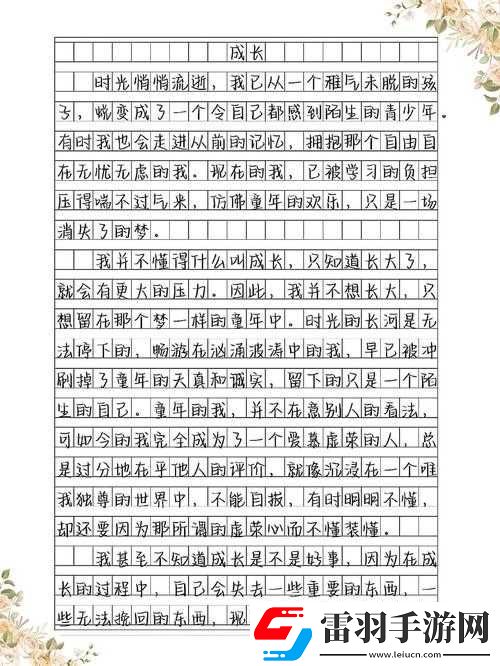 成长
时光悄悄流逝，我已从一个稚气未脱的孩
子，蜕变成了一个令自己都感到陌生的青少年。
有时我也会走进从前的记忆，拥抱那个自由自
在无忧无虑的我。现在的我，已被学习的负担
压得喘不过气来，仿佛童年的欢乐，只是一场
消失了的梦。
我并不懂得什么叫成长，只知道长大了，
就会有更大的压力。因此，我并不想长大，只
想留在那个梦一样的童年中。时光的长河是无
法停下的，畅游在汹涌波涛中的我，早已被冲
刷掉了童年的天真和诚实，留下的只是一个陌
生的自己。童年的我，并不在意别人的看法，
可如今的我完全成为了一个爱慕虚荣的人，总
是过分地在乎他人的评价，就像沉浸在一个唯
我独尊的世界中，不能自报，有时明明不懂，
却还要因为那所谓的虚荣心而不懂装懂。
我甚至不知道成长是不是好事，因为在成
长的过程中，自己会失去一些重要的东西，一
些无法挽回的东西，现
雷羽手游网
www.leiucn.com